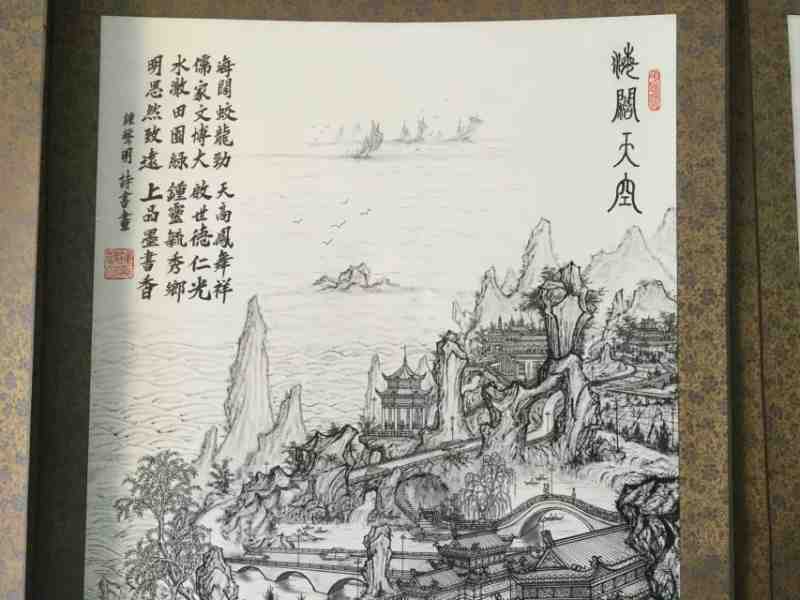 海闊天空
海闊蛟龍勁 天高鳳舞祥
儒家文博大 啟世德仁光
水澈田園綠 鍾靈毓秀鄉
明思然致遠 上品墨書香
鍾聲明 詩書畫